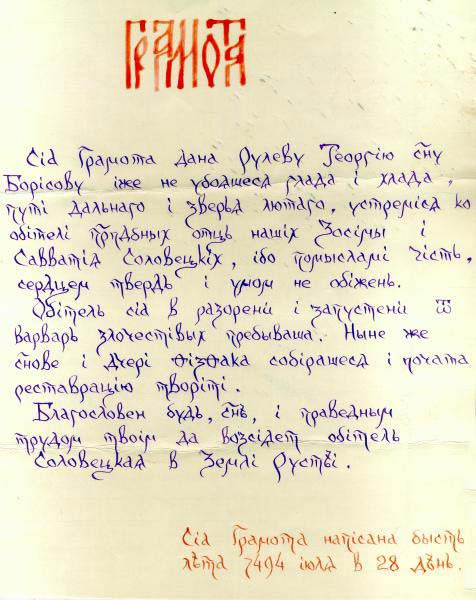 Грамота
Сiѧ Грамота дана Рулеву Георгiю сн҃у
Борiсову iже не убоѧшесѧ глада i хлада,
путi дальнаго i зверьѧ лютаго, устремiсѧ ко
обiтелi прп҃дбных отцъ нашiх Зосiмы i
Савватiѧ Соловецкiх, iбо помысламi чiстъ,
сердцем твердъ i умом не обiжен.
Обiтель сiѧ в разоренi i запустенi ѿ
варваръ злочестiвых пребываша. Ныне же
сн҃ове i дчерi Ѳiзѳака собiрашесѧ i почата
реставрацiю творiтi.
Благословен будь, сн҃ъ, i праведным
трудом твоiм да возсiдет обiтель
Соловецкаѧ в Землi Рустѣi.
Сiѧ Грамота напiсана бысть
лѣта 7494 iюлѧ в 28 дѣнь.